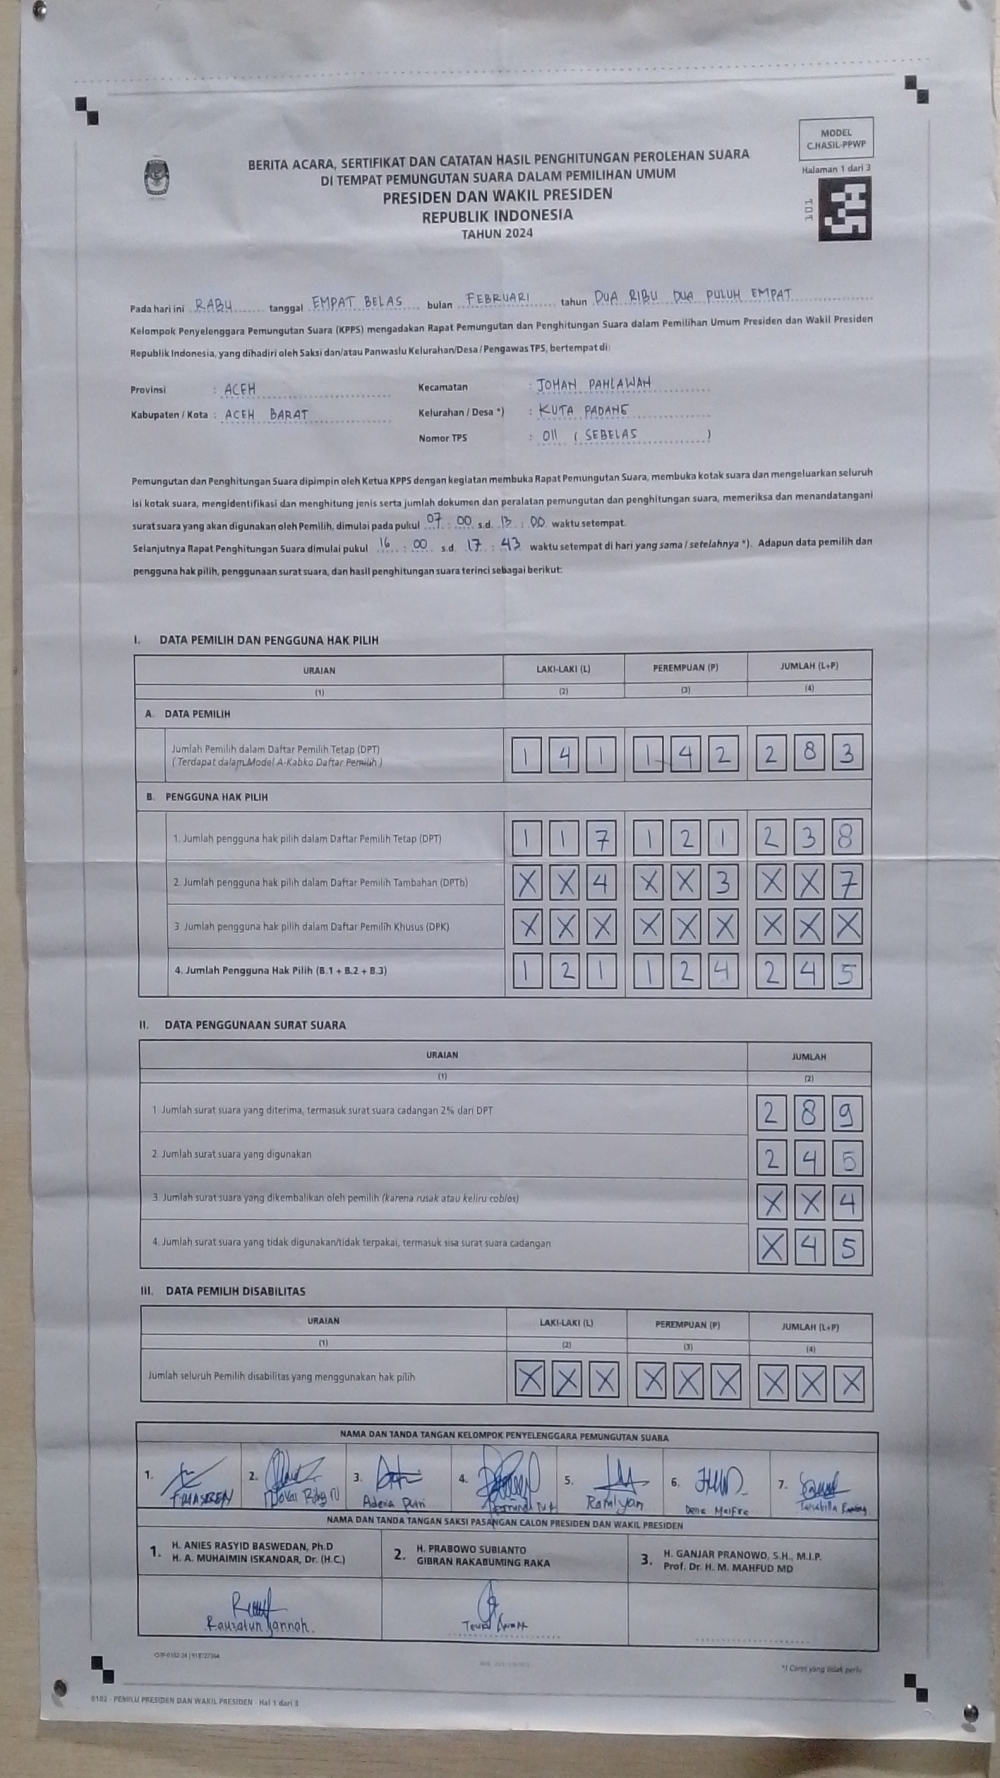 MODEL
C.HASIL-PPWP
Halaman 1 dari 3
101
BERITA ACARA, SERTIFIKAT DAN CATATAN HASIL PENGHITUNGAN PEROLEHAN SUARA
DI TEMPAT PEMUNGUTAN SUARA DALAM PEMILIHAN UMUM
PRESIDEN DAN WAKIL PRESIDEN
REPUBLIK INDONESIA
TAHUN 2024
Pada hari ini RABU tanggal EMPAT BELAS bulan FEBRUARI tahun DUA RIBU DUA PULUH EMPAT
Kelompok Penyelenggara Pemungutan Suara (KPPS) mengadakan Rapat Pemungutan dan Penghitungan Suara dalam Pemilihan Umum Presiden dan Wakil Presiden
Republik Indonesia, yang dihadiri oleh Saksi dan/atau Panwaslu Kelurahan/Desa / Pengawas TPS, bertempat di:
Provinsi : ACEH Kecamatan : JOHAN PAHLAWAN
Kabupaten / Kota : ACEH BARAT Kelurahan / Desa *) : KUTA PADANG
Nomor TPS : 011 ( SEBELAS )
Pemungutan dan Penghitungan Suara dipimpin oleh Ketua KPPS dengan kegiatan membuka Rapat Pemungutan Suara, membuka kotak suara dan mengeluarkan seluruh
isi kotak suara, mengidentifikasi dan menghitung jenis serta jumlah dokumen dan peralatan pemungutan dan penghitungan suara, memeriksa dan menandatangani
surat suara yang akan digunakan oleh Pemilih, dimulai pada pukul 07 : 00 s.d. 13 : 00 waktu setempat.
Selanjutnya Rapat Penghitungan Suara dimulai pukul 16 : 00 s.d. 17 : 43 waktu setempat di hari yang sama / setelahnya *). Adapun data pemilih dan
pengguna hak pilih, penggunaan surat suara, dan hasil penghitungan suara terinci sebagai berikut:
I. DATA PEMILIH DAN PENGGUNA HAK PILIH
URAIAN LAKI-LAKI (L) PEREMPUAN (P) JUMLAH (L+P)
(1) (2) (3) (4)
A. DATA PEMILIH
Jumlah Pemilih dalam Daftar Pemilih Tetap (DPT) 1 4 1 1 4 2 2 8 3
( Terdapat dalam Model A-Kabko Daftar Pemilih )
B. PENGGUNA HAK PILIH
1. Jumlah pengguna hak pilih dalam Daftar Pemilih Tetap (DPT) 1 1 7 1 2 1 2 3 8
2. Jumlah pengguna hak pilih dalam Daftar Pemilih Tambahan (DPTb) X X 4 X X 3 X X 7
3. Jumlah pengguna hak pilih dalam Daftar Pemilih Khusus (DPK) X X X X X X X X X
4. Jumlah Pengguna Hak Pilih (B.1 + B.2 + B.3) 1 2 1 1 2 4 2 4 5
II. DATA PENGGUNAAN SURAT SUARA
URAIAN JUMLAH
(1) (2)
1. Jumlah surat suara yang diterima, termasuk surat suara cadangan 2% dari DPT 2 8 9
2. Jumlah surat suara yang digunakan 2 4 5
3. Jumlah surat suara yang dikembalikan oleh pemilih (karena rusak atau keliru coblos) X X 4
4. Jumlah surat suara yang tidak digunakan/tidak terpakai, termasuk sisa surat suara cadangan X 4 5
III. DATA PEMILIH DISABILITAS
URAIAN LAKI-LAKI (L) PEREMPUAN (P) JUMLAH (L+P)
(1) (2) (3) (4)
Jumlah seluruh Pemilih disabilitas yang menggunakan hak pilih X X X X X X X X X
NAMA DAN TANDA TANGAN KELOMPOK PENYELENGGARA PEMUNGUTAN SUARA
1. 2. 3. 4. 5. 6. 7.
Aderia Putri Ramlyan
NAMA DAN TANDA TANGAN SAKSI PASANGAN CALON PRESIDEN DAN WAKIL PRESIDEN
1. H. ANIES RASYID BASWEDAN, Ph.D
H. A. MUHAIMIN ISKANDAR, Dr. (H.C.)
2. H. PRABOWO SUBIANTO
GIBRAN RAKABUMING RAKA
3. H. GANJAR PRANOWO, S.H., M.I.P.
Prof. Dr. H. M. MAHFUD MD
Rauzatun Jannah.
*) Coret yang tidak perlu
0182 - PEMILU PRESIDEN DAN WAKIL PRESIDEN - Hal 1 dari 3